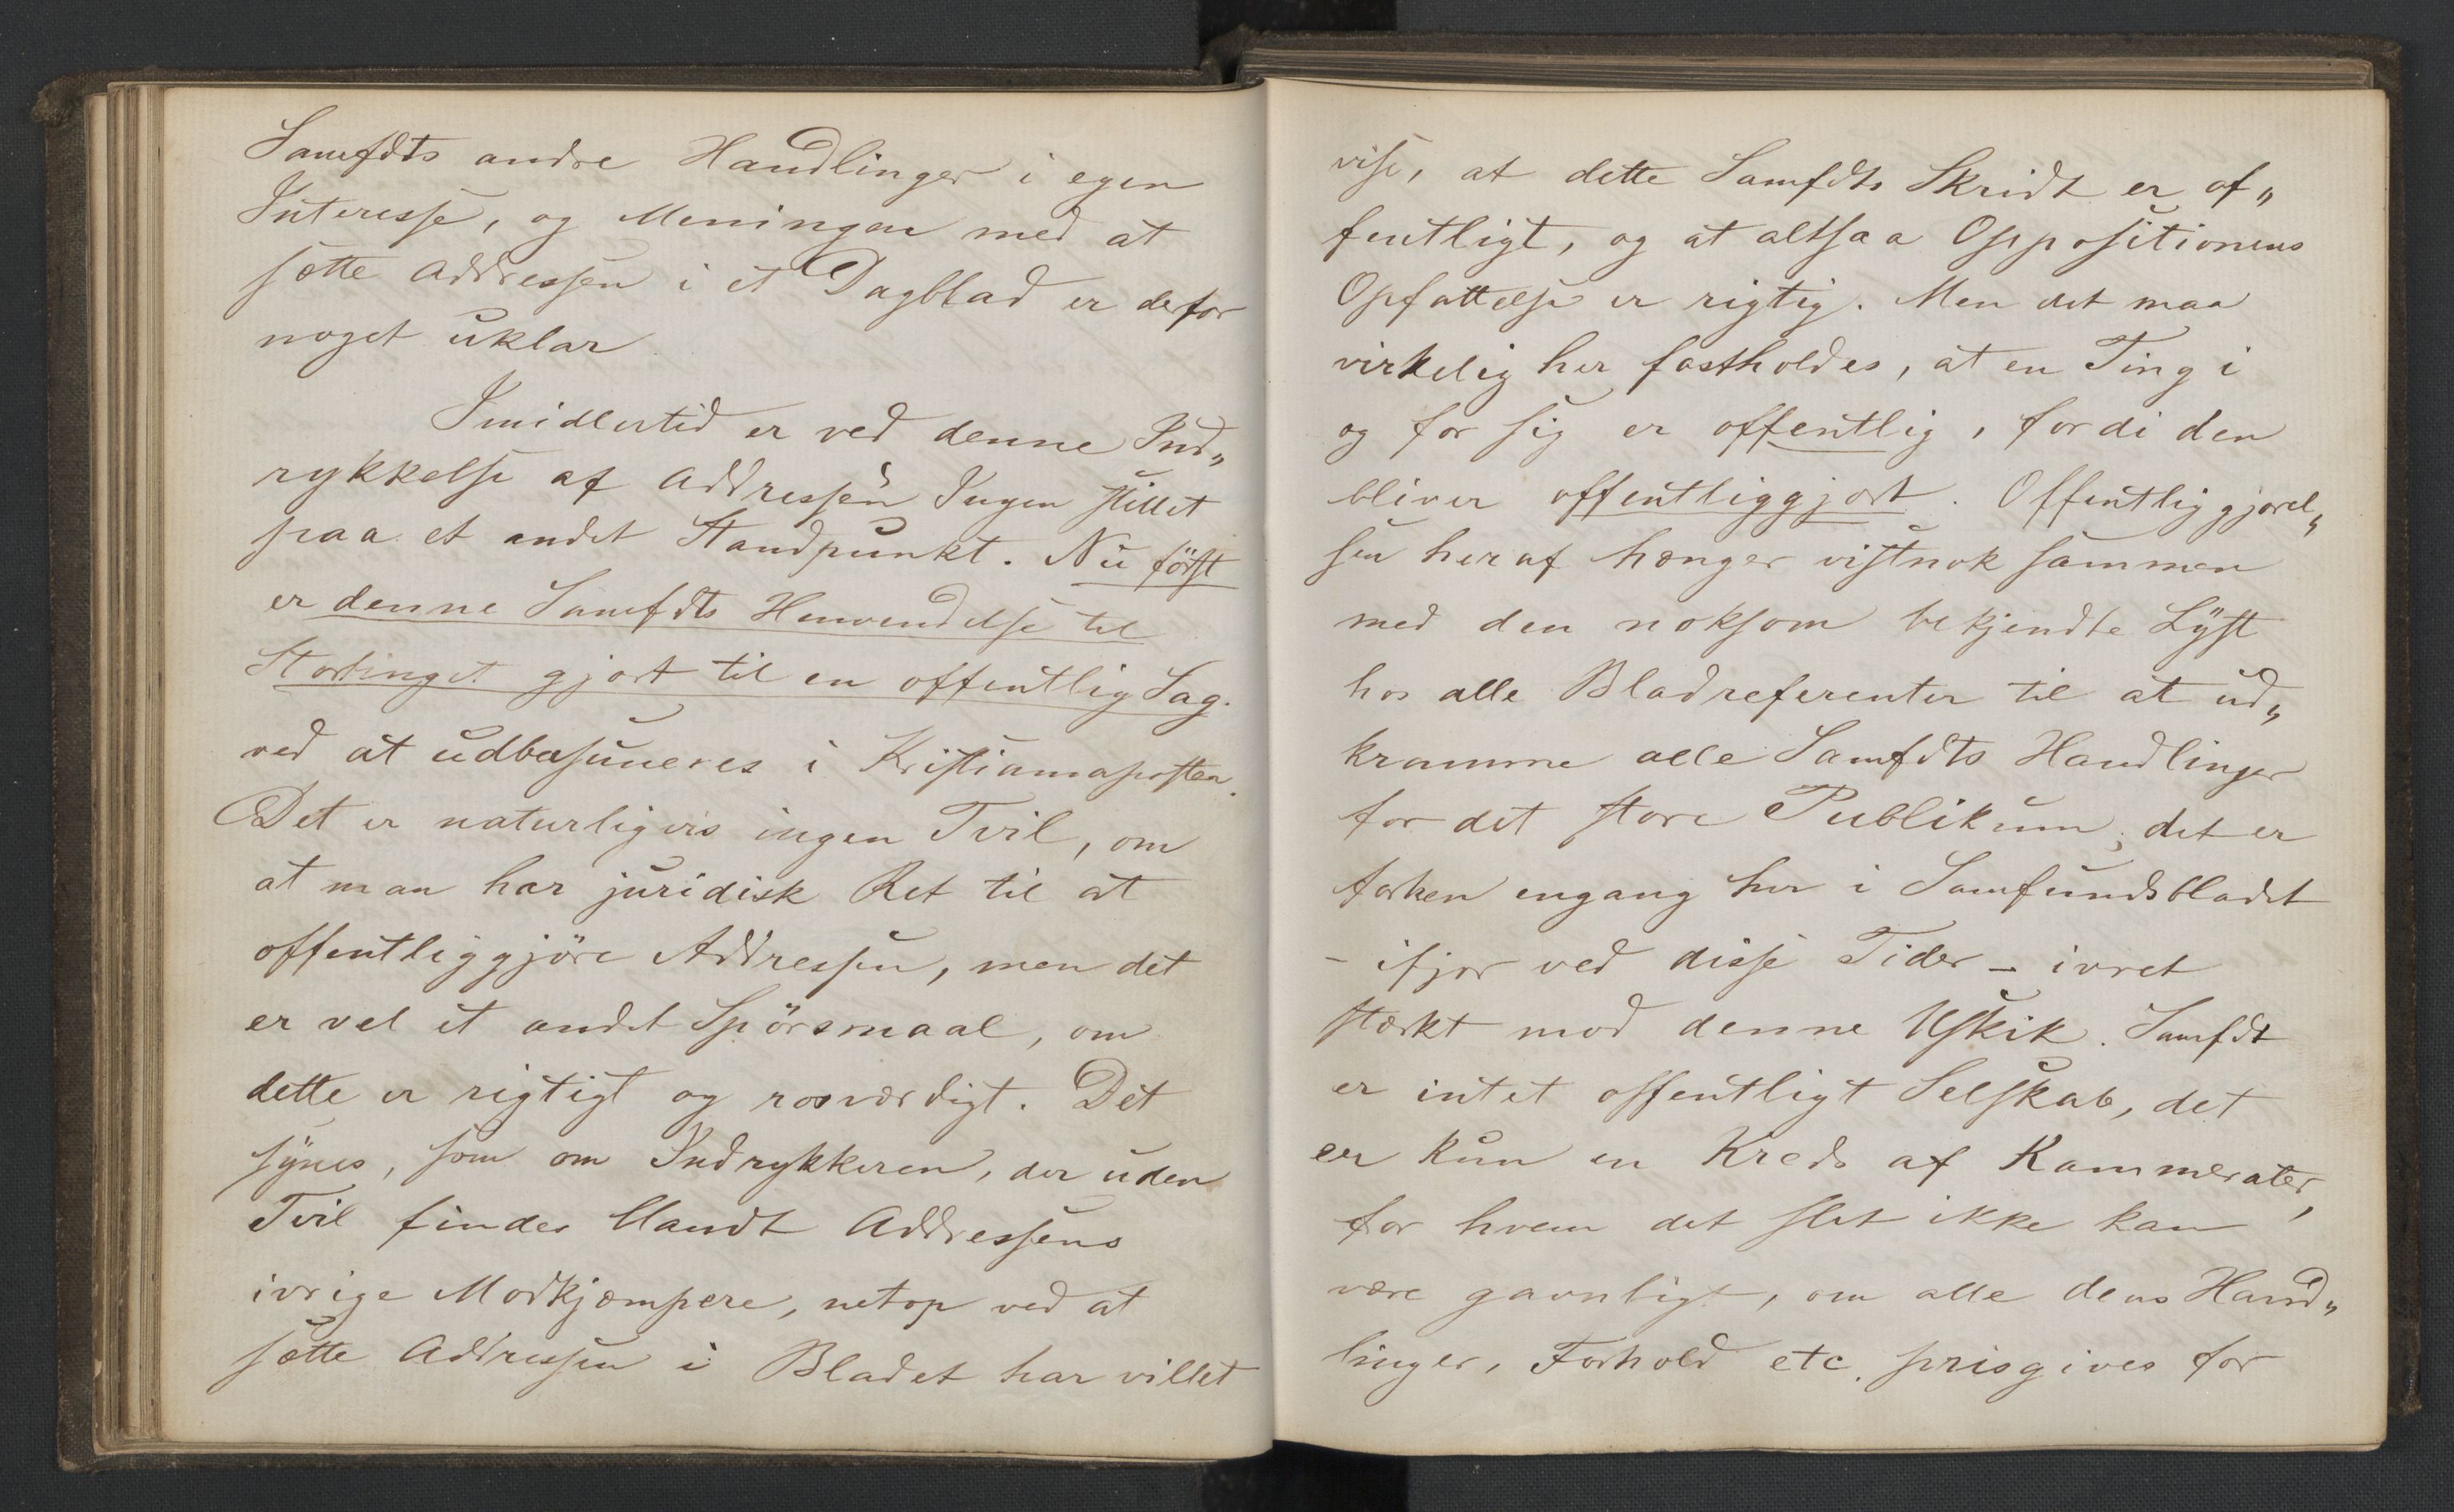 Samfdts andre Handlinger i egen
Interesse, og Meningen med at
sætte Addressen i et Dagblad er derfor
noget uklar.
Imidlertid er ved denne Ind„
rykkelse af Addressen Sagen stillet
paa et andet Standpunkt. Nu först
er denne Samfdts Henvendelse til
Stortinget gjort til en offentlig Sag.
ved at udbasuneres i Kristianiaposten.
Det er naturligvis ingen Tvil, om
at man har juridisk Ret til at
offentliggjöre Addressen, men det
er vel et andet Spörsmaal, om
dette er rigtigt og rosværdigt. Det
synes, som om Indrykkeren, der uden
Tvil findes blandt Addressens
ivrige Modkjæmpere, netop ved at
sætte Addressen i Bladet har villet
vise, at dette Samfdts Skridt er of„
fentligt, og at altsaa Oppositionens
Opfattelse er rigtig. Men det maa
virkelig her fastholdes, at en Ting i
og for sig er offentlig, fordi den
bliver offentliggjort. Offentliggjorel„
sen heraf hænger vistnok sammen
med den noksom bekjendte Lyst
hos alle Bladreferenter til at ud„
kramme alle Samfdts Handlinger
for det store Publikum; det er
forhen engang her i Samfundsbladet
- ifjor ved disse Tider - ivret
stærkt mod denne Uskik. Samfdt
er intet offentligt Selskab, det
er kun en Kreds af Kammerater,
for hvem det slet ikke kan
være gavnligt, om alle dens Hand„
linger, Forhold etc. prisgives for